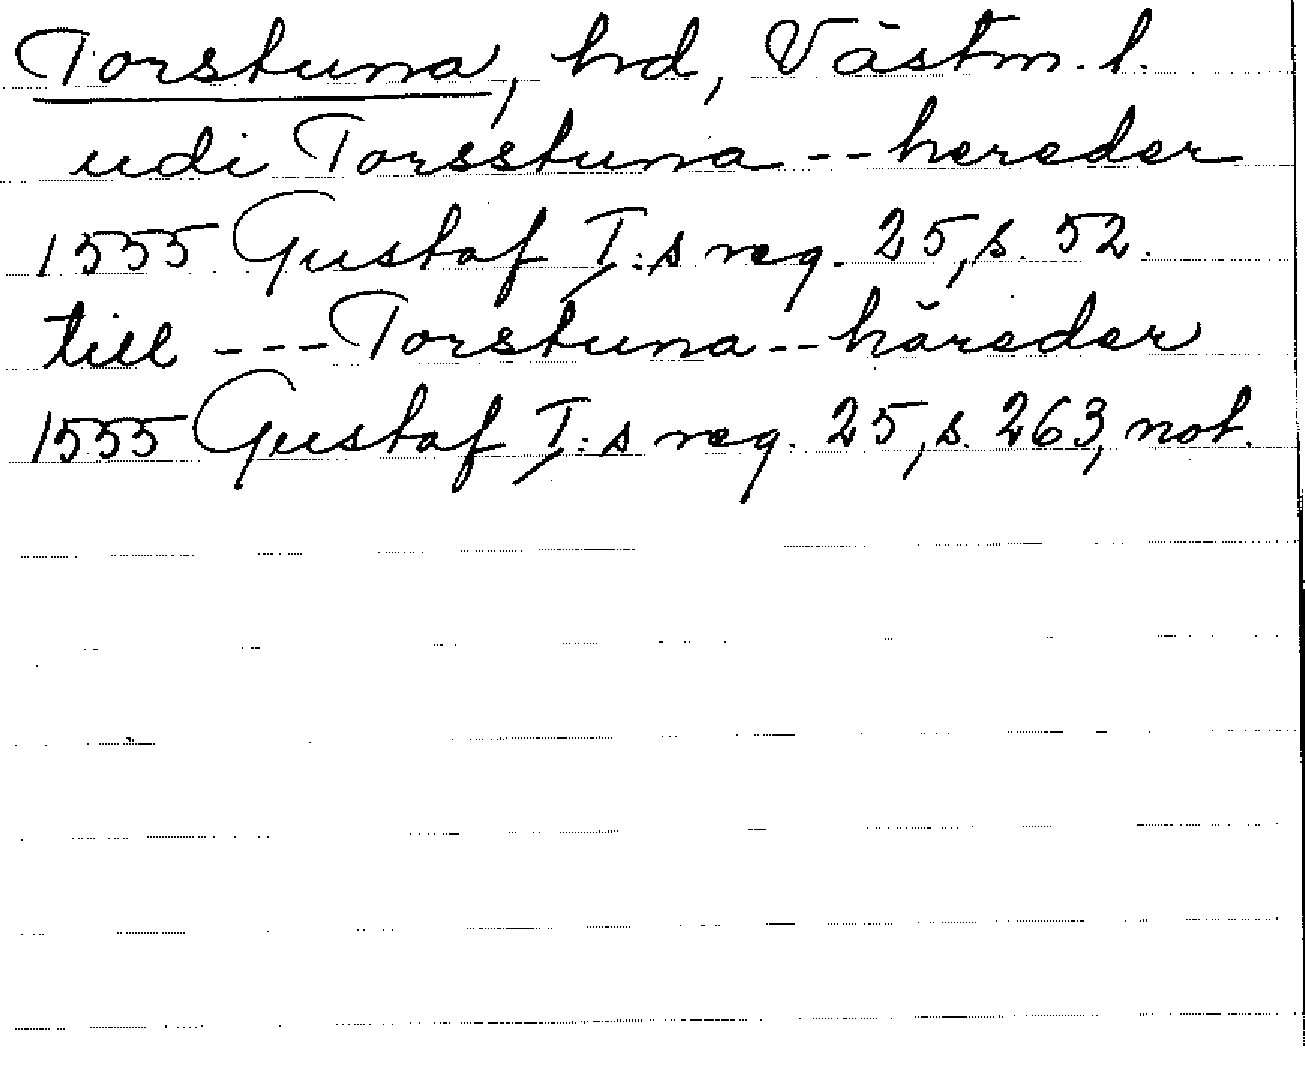 Torstuna, hrd, Västm. l.
udi Torsstuna -- hereder
1555 Gustaf I:s reg. 25, s. 52.
till --- Torstuna -- häreder
1555 Gustaf I:s reg. 25, s. 263, not.